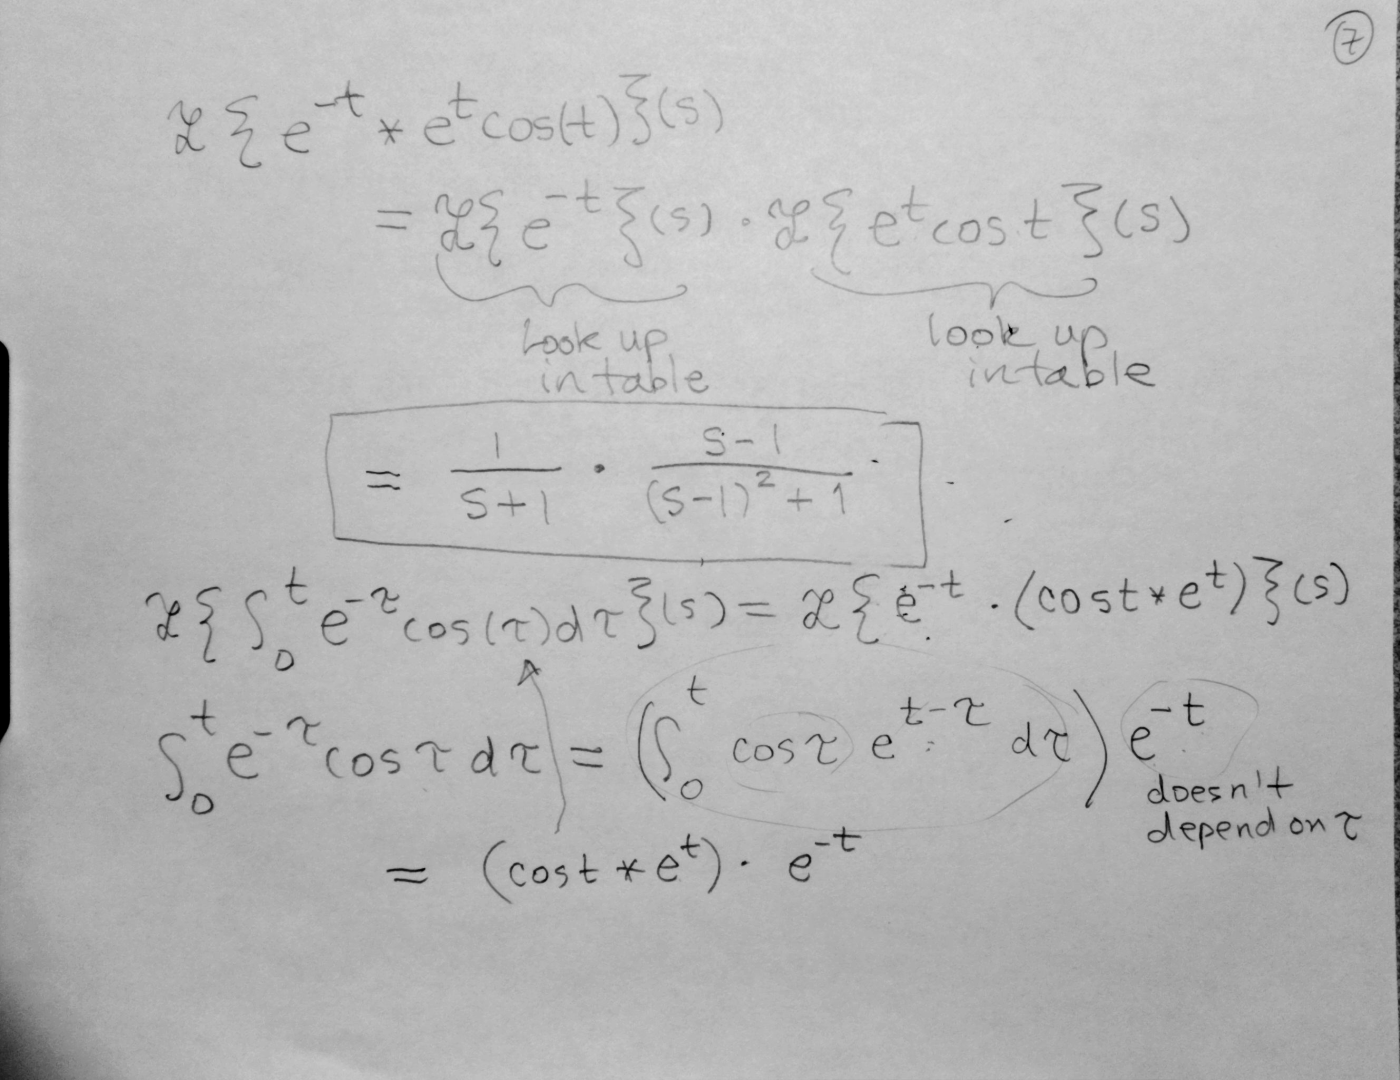 7
ℒ{e^{-t} * e^t cos(t)}(s)
= ℒ{e^{-t}}(s) · ℒ{e^t cos t}(s)
Look up look up
in table in table
= 1/(s+1) · (s-1)/((s-1)^2 + 1)
ℒ{∫_0^t e^{-τ} cos(τ)dτ}(s) = ℒ{e^{-t} · (cos t * e^t)}(s)
∫_0^t e^{-τ} cos τ dτ = (∫_0^t cos τ e^{t-τ} dτ) e^{-t}
doesn't
depend on τ
= (cos t * e^t) · e^{-t}